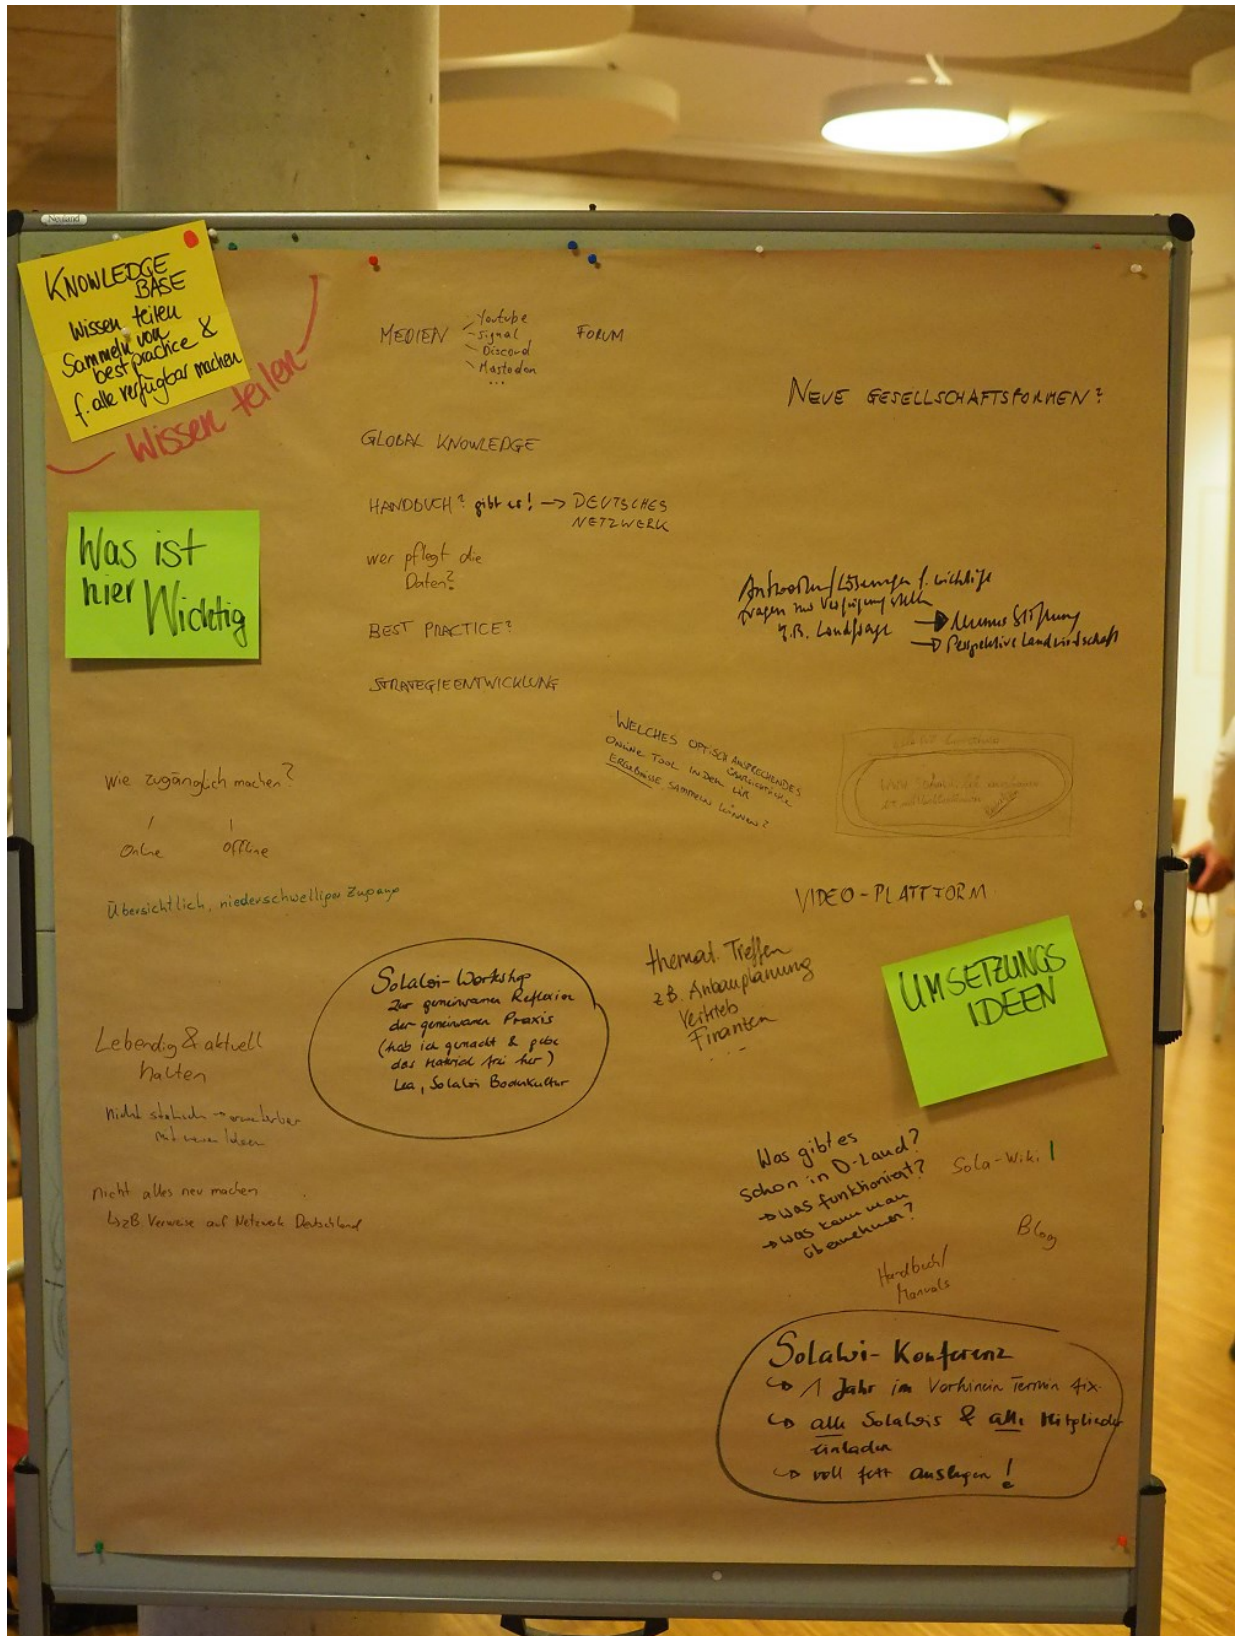 Neuland
KNOWLEDGE
BASE
Wissen teilen
Sammeln von
best practice &
f. alle verfügbar machen
Wissen teilen
MEDIEN
Youtube
Signal
Discord
Mastodon
...
FORUM
NEUE GESELLSCHAFTSFORMEN?
GLOBAL KNOWLEDGE
HANDBUCH? gibt es! → DEUTSCHES
NETZWERK
wer pflegt die
Daten?
BEST PRACTICE?
STRATEGIEENTWICKLUNG
Was ist
hier Wichtig
Antworten/Lösungen f. wichtige
Fragen zur Verfügung stellen
z.B. Landfrage → Munus Stiftung
→ Perspektive Landwirtschaft
WELCHES OPTISCH ANSPRECHENDES
ONLINE TOOL IN DEM WIR
ERGEBNISSE SAMMELN KÖNNEN?
Wie zugänglich machen?
Online
Offline
Übersichtlich, niederschwelliger Zugang
VIDEO-PLATTFORM
UMSETZUNGS
IDEEN
themat. Treffen
z.B. Anbauplanung
Vertrieb
Finanzen
...
Solawi-Workshop
zur gemeinsamen Reflexion
der gemeinsamen Praxis
(hab ich gemacht & gebe
das Material frei her)
Lea, Solawi Bodenkultur
Lebendig & aktuell
halten
nicht statisch → erweiterbar
mit neuen Ideen
nicht alles neu machen
↳ zB Verweise auf Netzwerk Deutschland
Was gibt es
schon in D-Land?
→ was funktioniert?
→ was kann man
übernehmen?
Sola-Wiki!
Blog
Handbuch/
Manuals
Solawi-Konferenz
↳ 1 Jahr im Vorhinein Termin fix.
↳ alle Solawis & alle Mitglieder
einladen
↳ voll fett auslegen!